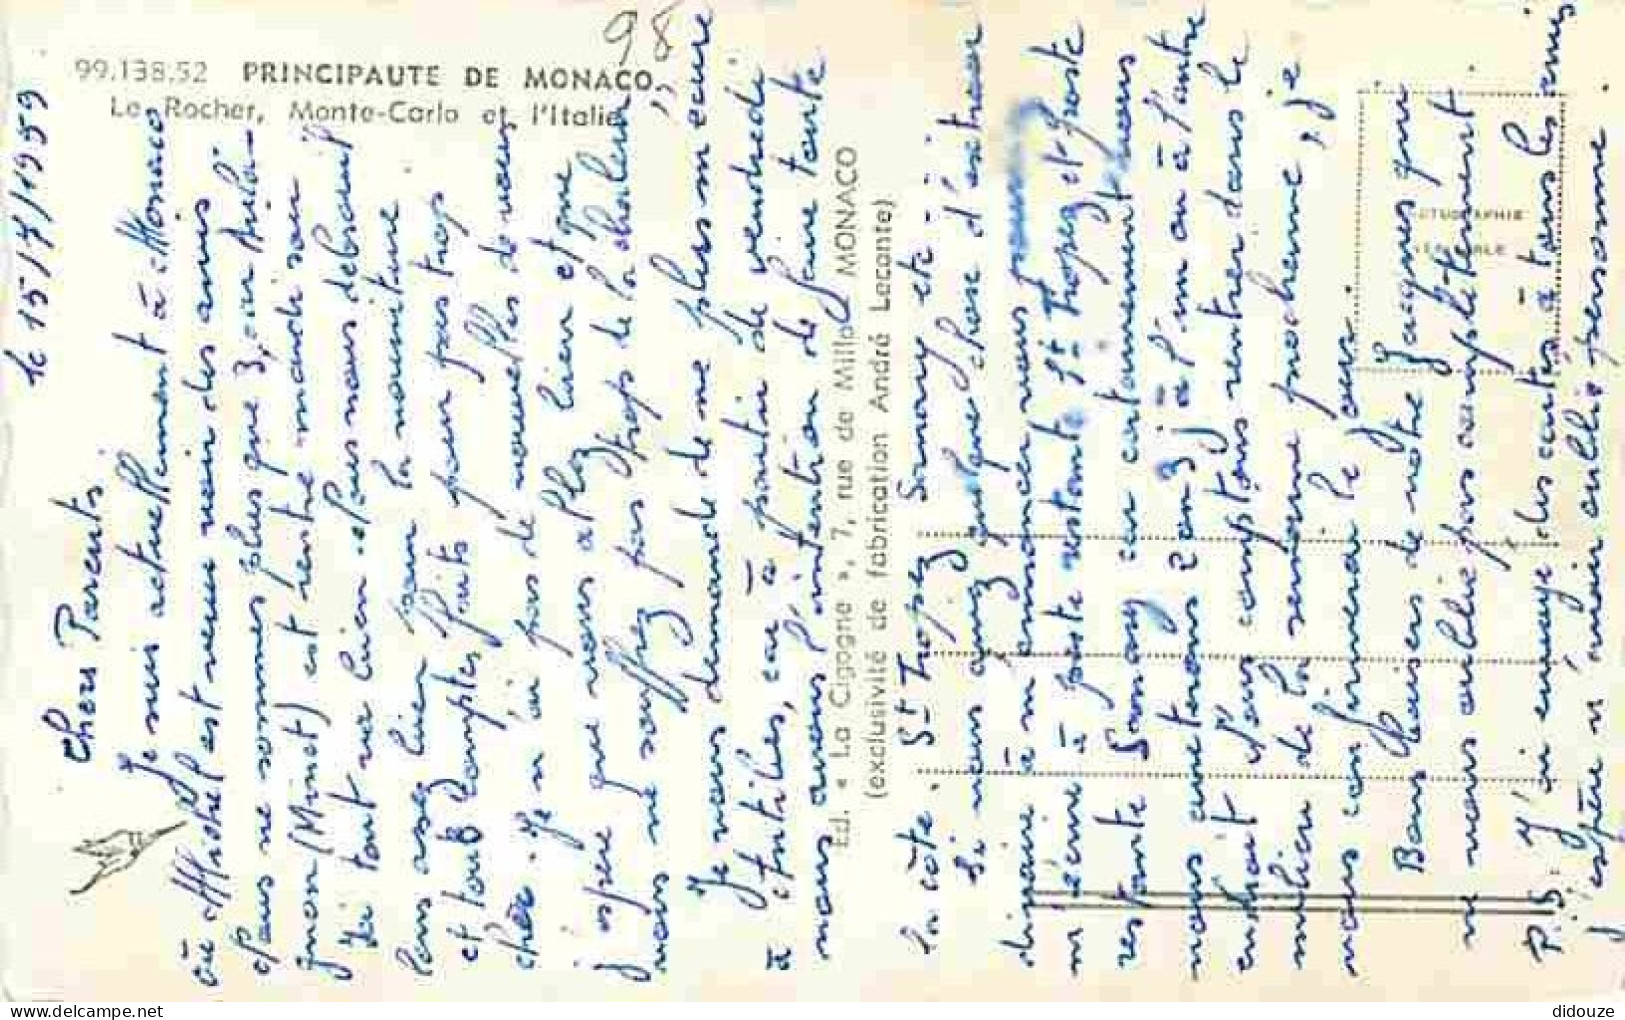 98
99.138.52 PRINCIPAUTE DE MONACO
Le Rocher, Monte-Carlo et l'Italie
Ed. « La Cigogne », 7, rue de Millo MONACO
(exclusivité de fabrication André Lecante)
le 15/7/1959
Chers Parents
Je suis actuellement à Monaco
où Michel est venu voir des amis
nous ne sommes plus que 3, car
(Minot) est rentré mardi soir
Ici tout va bien. Nous nous débrouil-
lons assez bien pour la nourriture
et tout compte fait pour pas trop
cher. Je n'ai pas de nouvelles de vous
j'espère que vous allez bien et que
vous ne souffrez pas trop de la chaleur
Je vous demande de ne plus m'écrire
à Antibes, car à partir de vendredi
nous avons l'intention de faire toute
la côte. St Tropez Sanary etc...
Si vous avez quelque chose d'extraor
dinaire à m'annoncer vous pouvez
m'écrire à poste restante St Tropez et poste
restante Sanary car certainement nous
nous arrêterons 2 ou 3 j à l'un ou à l'autre
endroit. Nous comptons rentrer dans le
milieu de la semaine prochaine, je
vous confirmerai le jour.
Bons baisers de votre Jacques qui
ne vous oublie pas complètement
P.S. J'ai envoyé des cartes à tous les amis
j'espère n'avoir oublié personne.
didouze